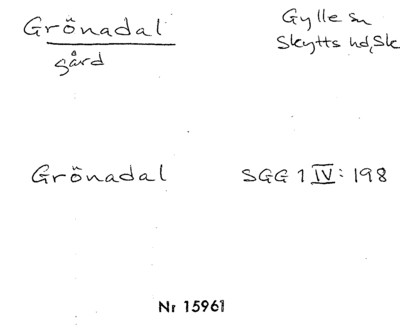 Grönadal
gård
Gylle sn
Skytts hd, Sk
Grönadal
SGG 1 IV: 198
Nr 15961